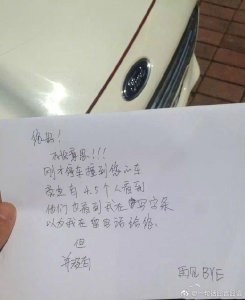 您好!
不好意思!!!
刚才停车撞到您的车
旁边有4.5个人看到
他们也看到我在写字条
以为我在留电话给您
但
并没有
再见BYE